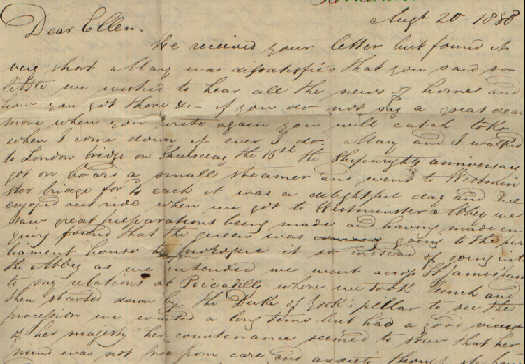 Augt 20 1838
Dear Ellen.
We received your letter but found it
very short Mary was dissatisfied that you said so
little we wished to hear all the news of home and
how you got there &c if you do not say a great deal
more when you write again you will catch it
when I come down if ever I do. Mary and I walked
to London bridge on the 15th the anniversary
got on board a small steamer and went to Westmin
ster bridge for each it was a delightful day and we
enjoyed our ride when we got to Westminster Abbey we
saw great preparations being made and having made en
quiry found that the queen was going to the par
liament house to it so instead of going into
the Abbey as we intended we went across St James's
to my relations at Piccadilly where we took lunch and
then started down by the Duke of York's pillar to see the
procession we waited a long time but had a good view
of her majesty her countenance seemed to show that her
mind was not free from care and anxiety